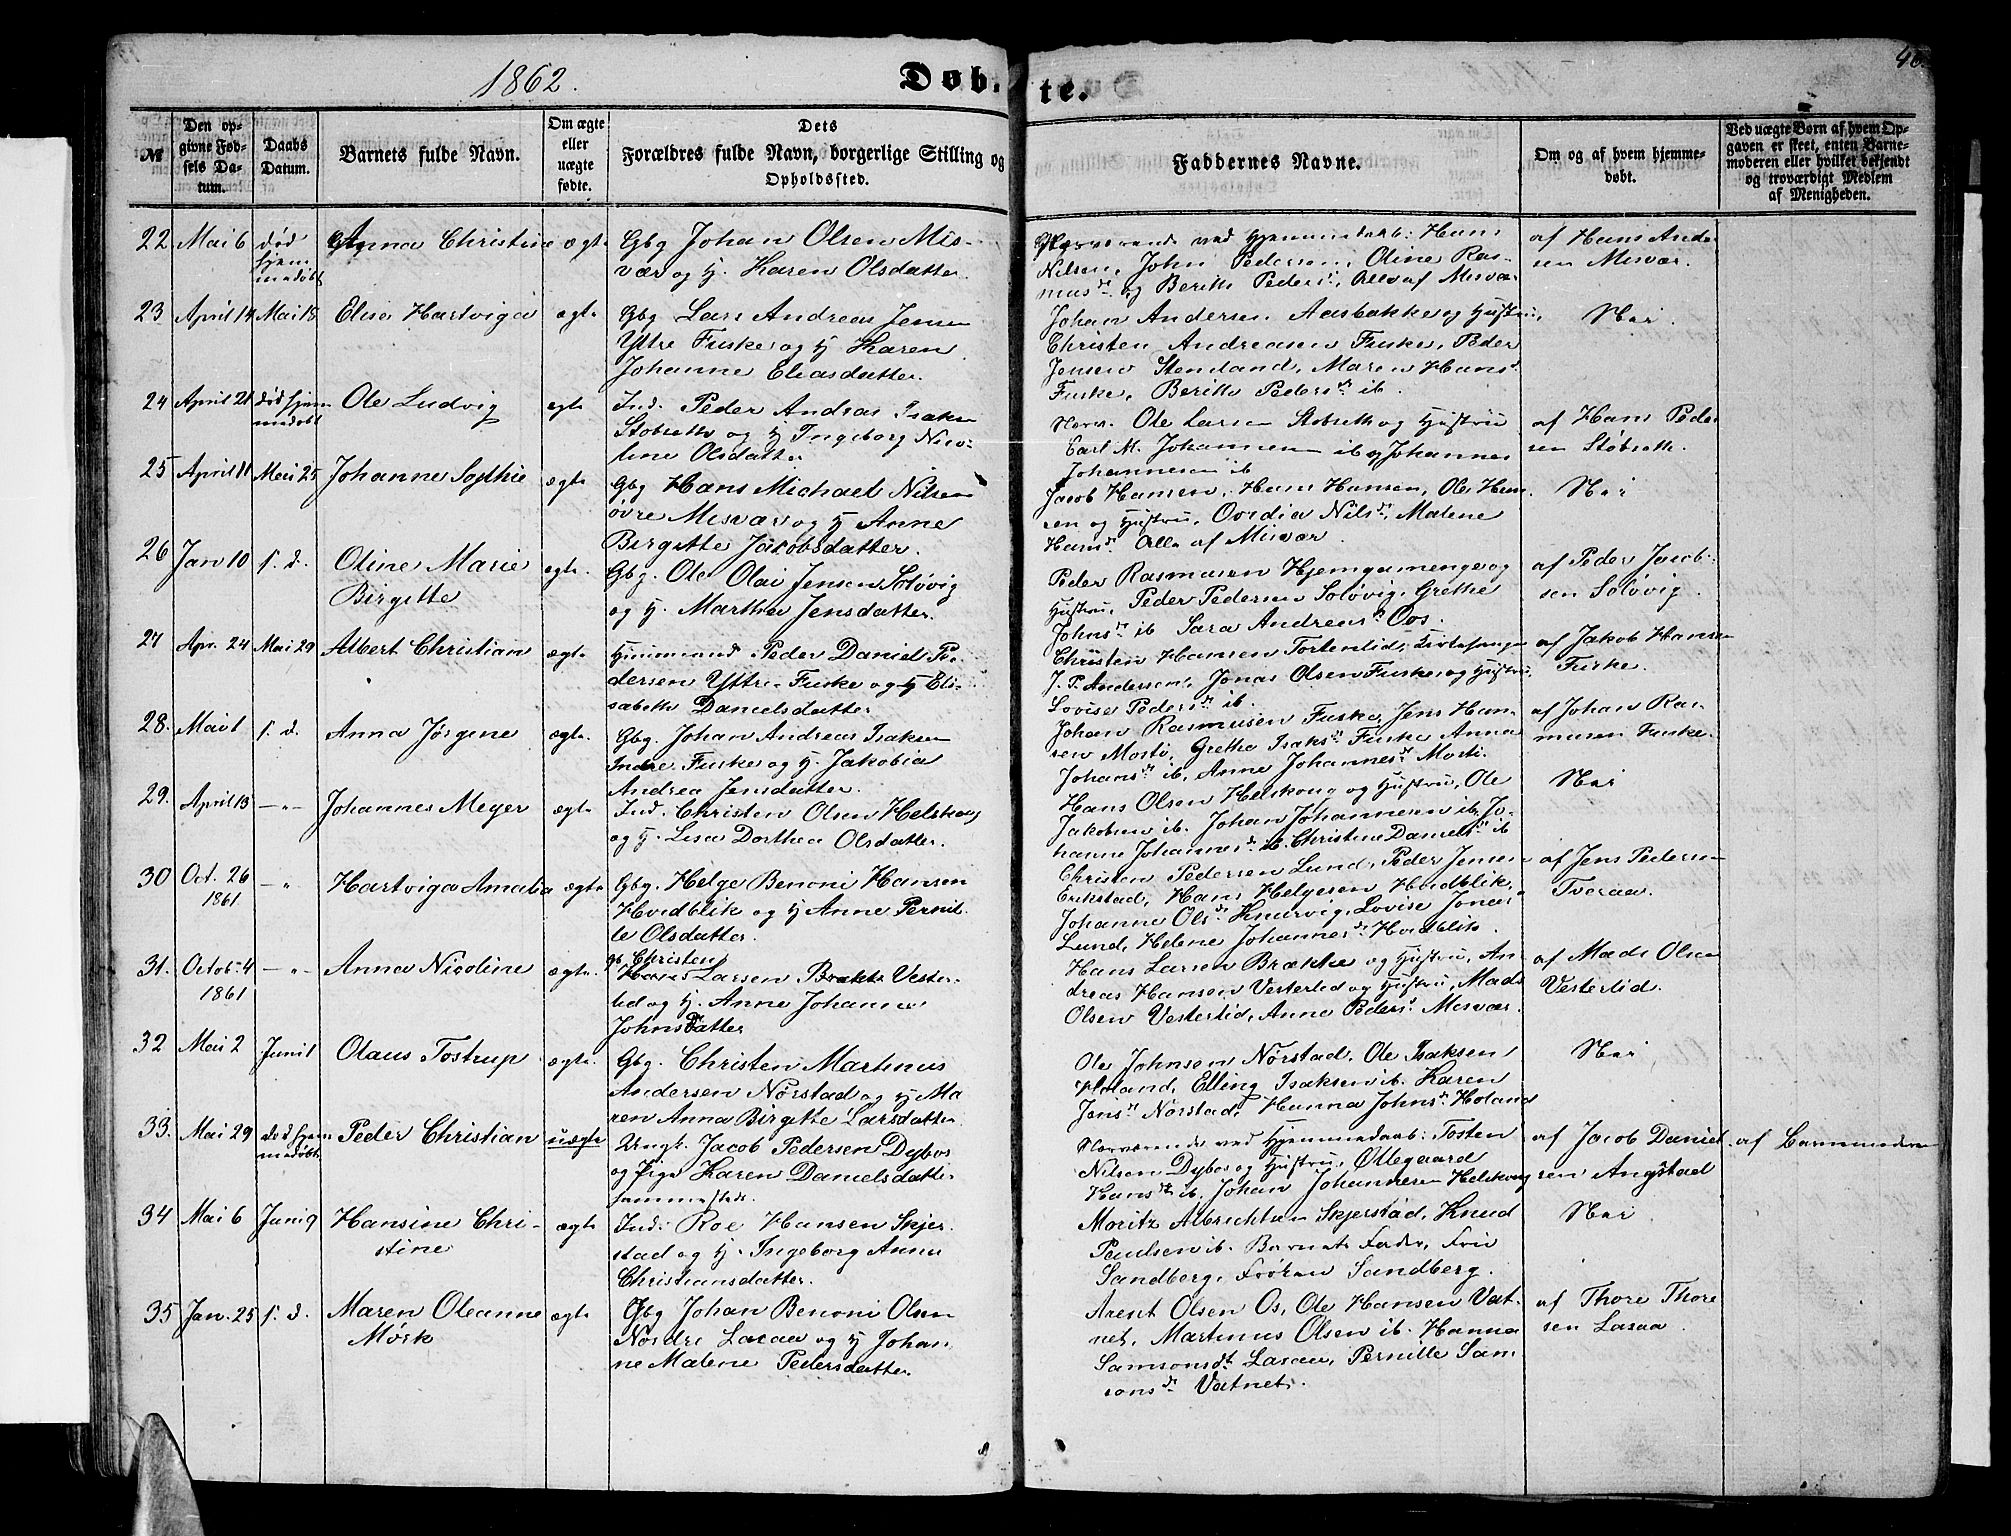 1862.
Døbte.
40.
№
Den opgivne Fødsels Datum.
Daabs Datum.
Barnets fulde Navn.
Om ægte eller uægte fødte.
Dets
Forældres fulde Navn, borgerlige Stilling og
Opholdssted.
Faddernes Navne.
Om og af hvem hjemmedøbt.
Ved uægte Børn af hvem Opgaven er skeet, enten Barnemoderen eller hvilket bekjendt og troværdigt Medlem af Menigheden.
22 Mai 6 død hjemmedøbt Anna Christine ægte
Gbg Johan Olsen Misvær og H. Karen Olsdatter.
Nærværende ved Hjemmedaab: Hans
Nilsen, John Pedersen, Oline Rasmusdr. og Berith Pedersdr, Alle af Misvær
af Hans Andersen Misvær.
23 April 14 Mai 18 Elise Hartviga ægte
Gbg Lars Andreas Jensen
Yttre Fuske og H Karen
Johanne Eliasdatter.
Johan Andersen Aasbakke og Hustru,
Christen Andreasen Fuske, Peder
Jensen Stenland, Maren Hansdr.
Fuske, Berith Pedersdr ib.
Nei.
24 April 21 død hjemmedøbt Ole Ludvig ægte
Ind. Peder Andreas Isaksen
Støbseth og H Ingeborg Nicoline Olsdatter
Nærv. Ole Larsen Støbseth og Hustru
Carl M. Johannesen ib og Johannes
Johannesen ib
af Hans Pedersen Støbseth.
25 April 11 Mai 25 Johanne Sophie ægte
Gbg Hans Michael Nilsen
øvre Misvær og H Anne
Birgitte Jakobsdatter.
Jacob Hansen, Hans Hansen, Ole Hansen og Hustru, Ovedia Nilsdr, Malene
Hansdr. Alle af Misvær.
Nei
26 Jan 10 s. d. Oline Marie
Birgitte ægte
Gbg. Ole Olai Jensen Soløvig
og H. Martha Jensdatter.
Peder Rasmusen Hjemgamenge og
Hustru, Peder Pedersen Soløvig, Grethe
Johnsdr ib Sara Andreasdr Oos.
af Peder Jacobsen Soløvig.
27 Apr. 24 Mai 29 Albert Christian ægte
Huusmand Peder Daniel Pedersen Yttre Fuske og H Elisabeth Danielsdatter
Christen Hansen Tortenlid,
J. P. Andersen, Jonas Olsen Fuske og Hustru,
Lovise Pedersdr ib.
af Jakob Hansen
Fuske.
28. Mai 1 s. d. Anna Jørgine ægte
Gbg. Johan Andreas Isaksen
Indre Fuske og H. Jakobia
Andrea Jensdatter.
Johan Rasmusen Fuske, Jens Hansen Mosti, Grethe Isaksdr Fuske Anna
Johansdr ib, Anne Johannesdr Mosti.
af Johan Rasmusen Fuske.
29. April 13 —"— Johannes Meyer ægte
Ind. Christen Olsen Helskoug
og H. Lisa Dorthea Olsdatter.
Hans Olsen Helskoug og Hustru, Ole
Jakobsen ib. Johan Johannesen ib, Johanne Johannesdr ib. Christine Danielsdr ib
Nei
30 Oct. 26
1861 —"— Hartviga Amalia ægte
Gbg. Helge Benoni Hansen
Hvidblik og H Anne Pernille Olsdatter.
Christen Pedersen Lund, Peder Jensen
Erikstad, Hans Helgesen Hvidblik,
Johanne Olsdr. Knurvig, Lovise Jonasdr
Lund, Helene Johannesdr Hvidblik.
af Jens Pedersen
Tveraa.
31. Octob. 4
1861 —"— Anna Nicoline ægte.
gb. Christen
Hans Larsen Brække Vesterlid og H. Anne Johanna
Johnsdatter
Hans Larsen Brække og Hustru, Andreas Hansen Vesterlid og Hustru, Mads
Olsen Vesterlid, Anne Pedersdr Misvær.
af Mads Olsen
Vesterlid.
32 Mai 2 Juni 1 Olaus Tostrup ægte.
Gbg. Christen Martinus
Andersen Nørstad og H Maren Anna Birgitte Larsdatter
Ole Johnsen Nørstad, Ole Isaksen
Holand, Elling Isaksen ib. Karen
Jensdr Nørstad, Hanna Johnsdr Holand
Nei
33. Mai 29 død hjemmedøbt Peder Christian uægte
Ungk. Jacob Pedersen Dybos
og Pige Karen Danielsdatter
sammesteds.
Nærværende ved Hjemmedaab: Tosten
Nilsen Dybos og Hustru, Ollegaard
Hansdr ib. Johan Johannesen Helskoug
af Jacob Danielsen Angstad
af Barnemoderen
34 Mai 6 Juni 9 Hansine Christine ægte
Ind. Roe Hansen Skjerstad og H. Ingeborg Anna
Christiansdatter.
Moritz Albrechtsen Skjerstad, Knud
Paulsen ib. Barnets Fader, Fru
Sandberg, Frøken Sandberg.
Nei.
35 Jan. 25 s. d. Maren Oleanne
Mørk ægte
Gbg Johan Benoni Olsen
Nordre Laxaa og H Johanne Malene Pedersdatter.
Arent Olsen Os, Ole Hansen Vatnet, Martinus Olsen ib. Hanna
Samsonsdt Laxaa, Pernille Samsonsdr Vatnet.
af Thore Thoresen Laxaa.